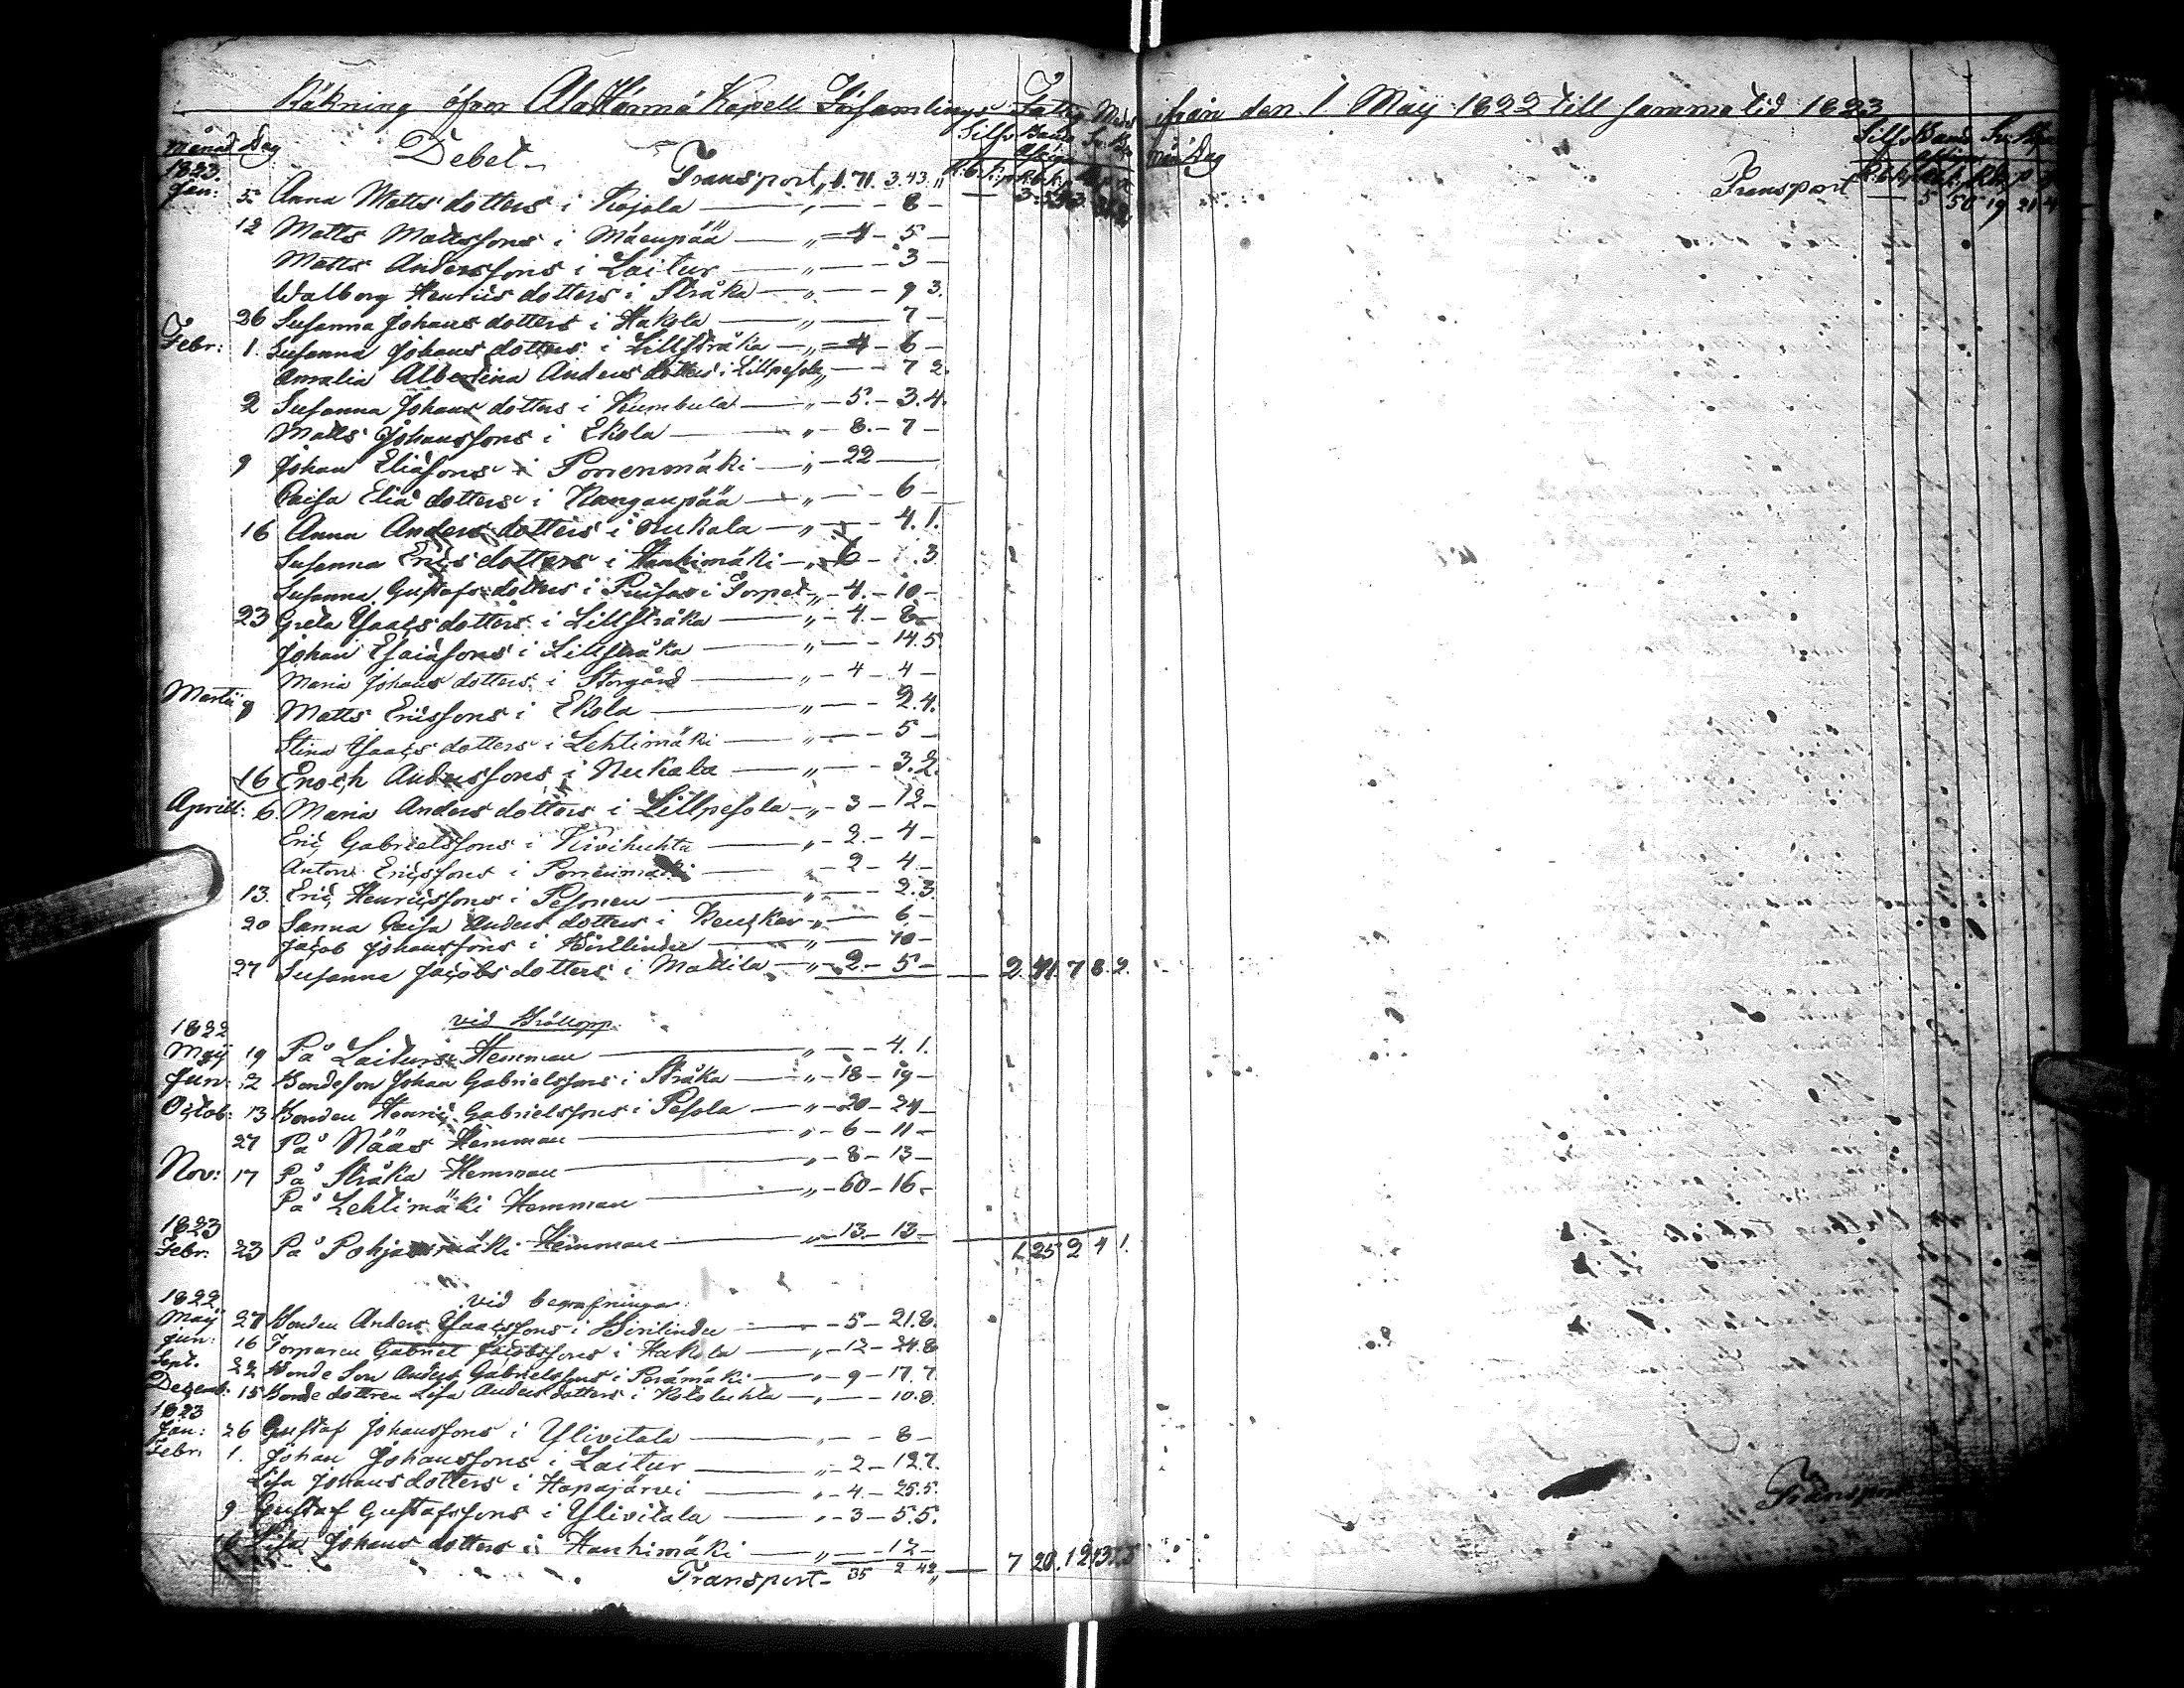 Räkning öfver AlaHärmä Kapell Församlings Fattig Med: från den 1. May 1822 till samma tid 1823
Månad Dag Debet Silf: Banco
1823. Transport „ 6. 71. 3.43. „
Jan: 5 Anna Matts dotters i Kojola — „ — - 8 -
12 Matts Mattssons i Mäenpää — „ - 4 - 5 -
Matts Anderssons i Laitur — „ — - 3 -
Walborg Henrics dotters i Stråka — „ — - 9 3.
26 Susanna Johans dotters i Hakola — „ — 7 -
Febr: 1. Susanna Johans dotters i Lillstråka — „ - 4 - 6 -
Amalia Albertina Anders dotters i Lillpesola „ — - 7 2.
2 Susanna Johans dotters i Kumbula — „ - 5. - 3.4.
Matts Johanssons i Ekola — „ - 8. - 7 -
9 Johan Eliæsons i Porrenmäki — „ - 22 —
Caisa Eliæ dotters i Kanganpää — „ — - 6 -
16 Anna Anders dotters i Nukala — „ — - 4. 1.
Susanna Erics dotters i Hanhimäki — „ - 6 - . 3
Susanna Gustafs dotters i Torpet „ - 4. - 10 -
23 Greta Isaacs dotters i Lillstråka — „ - 4. - 8 -
Johan Esaiæsons i Lillstråka — „ — - 14. 5
Maria Johans dotters i Storgård — „ - 4 - 4 -
Martii 9 Matts Ericssons i Ekola — „ — - 2.4.
Stina Isaacs dotters i Lehtimäki — „ — - 5 -
16 Enoch Anderssons i Nukala — „ — - 3.2.
Aprill: 6. Maria Anders dotters i Lillpesola - „ - 3 - 12 -
Eric Gabrielssons i Kivihuhta — „ - 2. - 4 -
Anton Ericssons i Porrenmäki — „ - 2 - 4 -
13. Eric Henricssons i Pesonen — „ — - 2.3
20 Sanna Caisa Anders dotters i — „ — 6 -
Jacob Johanssons i — „ — 10 -
27 Susanna Jacobs dotters i Mattila — „ - 2. - 5 - — 2. 41. 7 8. 2.
vid Bröllopp.
1822
Maij 19 På Laiturs Hemman — „ — - 4. 1.
Jun: 2 Bondeson Johan Gabrielssons i Stråka — „ - 18 - 19 -
Octob: 13 Bonden Henric Gabrielssons i Pesola — „ - 20 - 24 -
27 På Nääs Hemman — „ - 6 - 11 -
Nov: 17 På Stråka Hemman — „ - 8 - 13 -
På Lehtimäki Hemman — „ - 60 - 16 -
1823
Febr: 23 På Pohjasmäki Hemman — „ - 13 - 13 - — 1. 25 2 4 1.
vid begrafningar:
1822
Maij 27 Bonden Anders Isaacssons i — - 5 - 21.8.
Jun: 16 Torparen Gabriel Jacobssons i Hakola — „ - 12 - 24.8
Sept. 22 Bonde Son Anders Gabrielssons i Perämäki — „ - 9 - 17. 7.
Decemb: 15 Bonde dottren Lisa Anders dotters i — „ — - 10.8.
1823
Jan: 26 Gustaf Johanssons i Ylivitala — „ — - 8 -
Febr: 1. Johan Johanssons i Laitur — „ - 2 - 12.7.
Lisa Johans dotters i Hapajärvi — „ - 4. - 25.5.
9 Gustaf Gustafssons i Ylivitala — „ - 3 - 5.5.
16 Lisa Johans dotters i Hanhimäki — „ — - 12 -
Transport - 35 2 42 „ — 7 20. 12
Mån: Dag Silf: Banco
Transport — 5 50 19 21 4
Transport